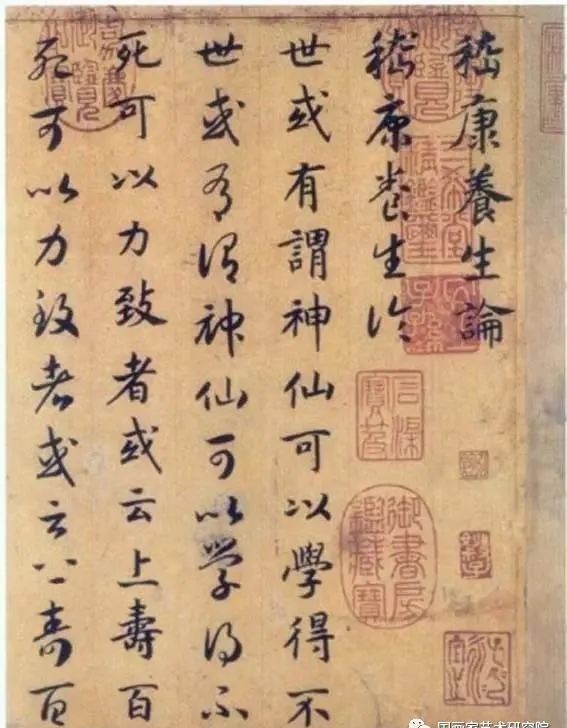 嵇康養生論
嵇康養生論
世或有謂神仙可以學得不
世或有謂神仙可以學得不
死可以力致者或云上壽百
死可以力致者或云上壽百
三希堂精鑑璽
宜子孫
石渠寶笈
御書房鑑藏寶
国画家艺术研究院